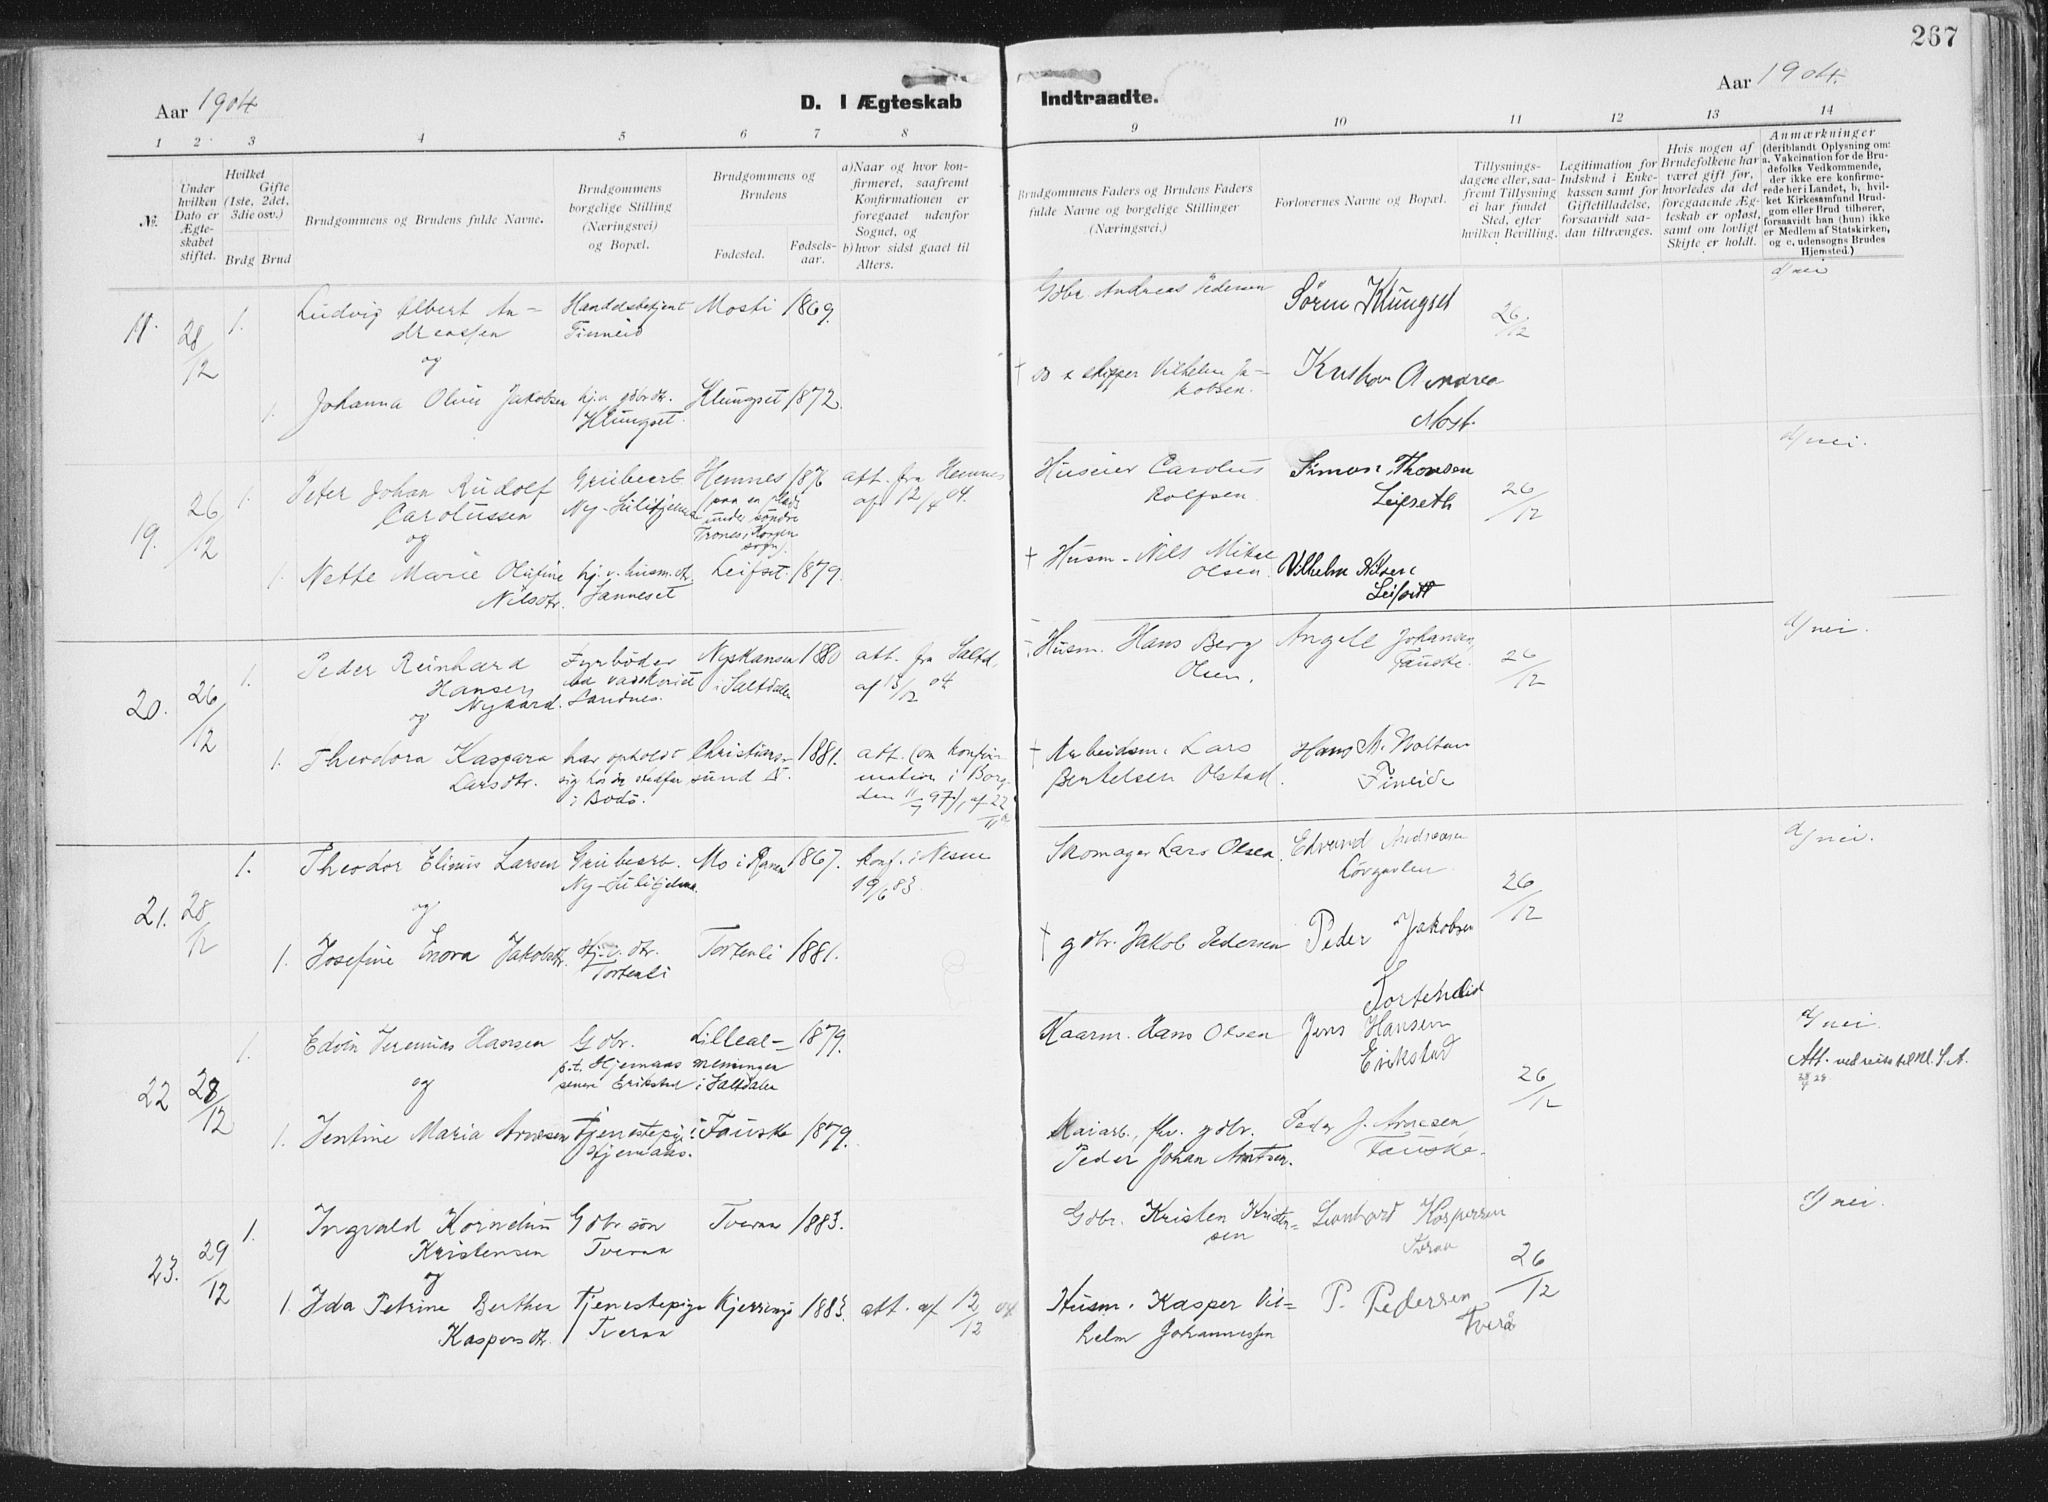 267
Aar 1904
D. I Ægteskab Indtraadte.
Aar 1904.
1 2 3 4 5 6 7 8 9 10 11 12 13 14
№.
Under hvilken Dato er Ægteskabet stiftet.
Hvilket Gifte (1ste, 2det, 3die osv.)
Brdg Brud
Brudgommens og Brudens fulde Navne.
Brudgommens borgelige Stilling (Næringsvei) og Bopæl.
Brudgommens og Brudens
Fødested.
Fødsels-aar.
a) Naar og hvor konfirmeret, saafremt Konfirmationen er foregaaet udenfor Sognet, og
b) hvor sidst gaaet til Alters.
Brudgommens Faders og Brudens Faders fulde Navne og borgelige Stillinger (Næringsvei.)
Forlovernes Navne og Bopæl.
Tillysnings-dagene eller, saafremt Tillysning ei har fundet Sted, efter hvilken Bevilling.
Legitimation for Indskud i Enkekassen samt for Giftetilladelse, forsaavidt saadan tiltrænges.
Hvis nogen af Brudefolkene har været gift før, hvorledes da det foregaaende Ægteskab er opløst, samt om lovligt Skifte er holdt.
Anmærkninger (deriblandt Oplysning om: a. Vakcination for de Brudefolks Vedkommende, der ikke ere konfirmerede her i Landet, b, hvilket Kirkesamfund Brudgom eller Brud tilhører, forsaavidt han (hun) ikke er Medlem af Statskirken, og c, udensogns Brudes Hjemsted.)
28/12 1. Ludvig Albert Andreassen Handelsbetjent Finneid Mosti 1869. Gdbr. Andreas Pedersen Sören Klungset 26/12 d/ nei
og
1. Johanna Olive Jakobsen hj.v. gdbr dtr. Klungset Klungset 1872. skipper Vilhelm Jakobsen. Andrea Most
19. 26/12 1. Peter Johan Rudolf Carolussen Grubearb. Ny-Sulitjelma Hemnes 1876 (paa en plads under søndre Trones i Korgen sogn). att. fra Hemnes af 12/4 04. Huseier Carolus Rolfsen. Simon Thonsen Leifseth 26/12 d/ nei.
og
1. Nette Marie Olufine Nilsdtr. hj. v. husm. dtr. Leifset. 1879. † Husm. Nils Mikal Olsen. Vilhelm Nilsen Leifsett
20. 26/12 1. Peder Reinhard Hansen Nygaard. Fyrbøder Sandnes. Nyskansen i Saltdalen 1880 att. fra Saltd. af 13/12 04. Husm. Hans Berg Olsen. Angell Johansen, Fauske. 26/12 d/ nei.
og
1. Theodora Kaspara Larsdtr. har opholdt sig i Bodø. Christianssund N. 1881. att. (om konfirmation i Borg den 11/7 97), af 22/11 † Arbeidsm. Lars Bentelsen Olstad. Hans M. Fineide
21. 28/12 1. Theodor Elinus Larsen Grubearb. Ny-Sulitjelma. Mo i Ranen 1867. konf. i Nesne 19/6 83. Skomager Lars Olsen. Edvard Andreasen 26/12 d/ nei.
og
1. Josefine Enora Jakobsdtr. Hj. v. dtr. Tortenli Tortenli 1881. † gdbr. Jakob Pedersen Peder Jakobsen
22 28/12 1. Edvin Jeremias Hansen Gdbr. p.t. Hjemaas senere Erikstad Lillealmenningen i Saltdalen 1879. Kaarm. Hans Olsen Jens Hansen Erikstad 26/12 d/ nei. Att.
og
1. Jentine Maria Arnesen Tjenestepige Hjemaas. Fauske 1879. Kaiarb., fhv. gdbr. Peder Johan Arntsen. Peder J. Arnesen, Fauske.
23. 29/12 1. Ingvald Kornelius Kristensen Gdbr søn Tveraa Tveraa 1883. Gdbr. Kristen Kristensen Leonhard Kaspersen Tveraa 26/12 d/ nei.
og
1. Ida Petrine Berthea Kaspersdtr. Tjenestepige Tveraa Kjerringø 1883. att. af 12/12 04 Husm. Kasper Vilhelm Johannessen P. Pedersen Tverå